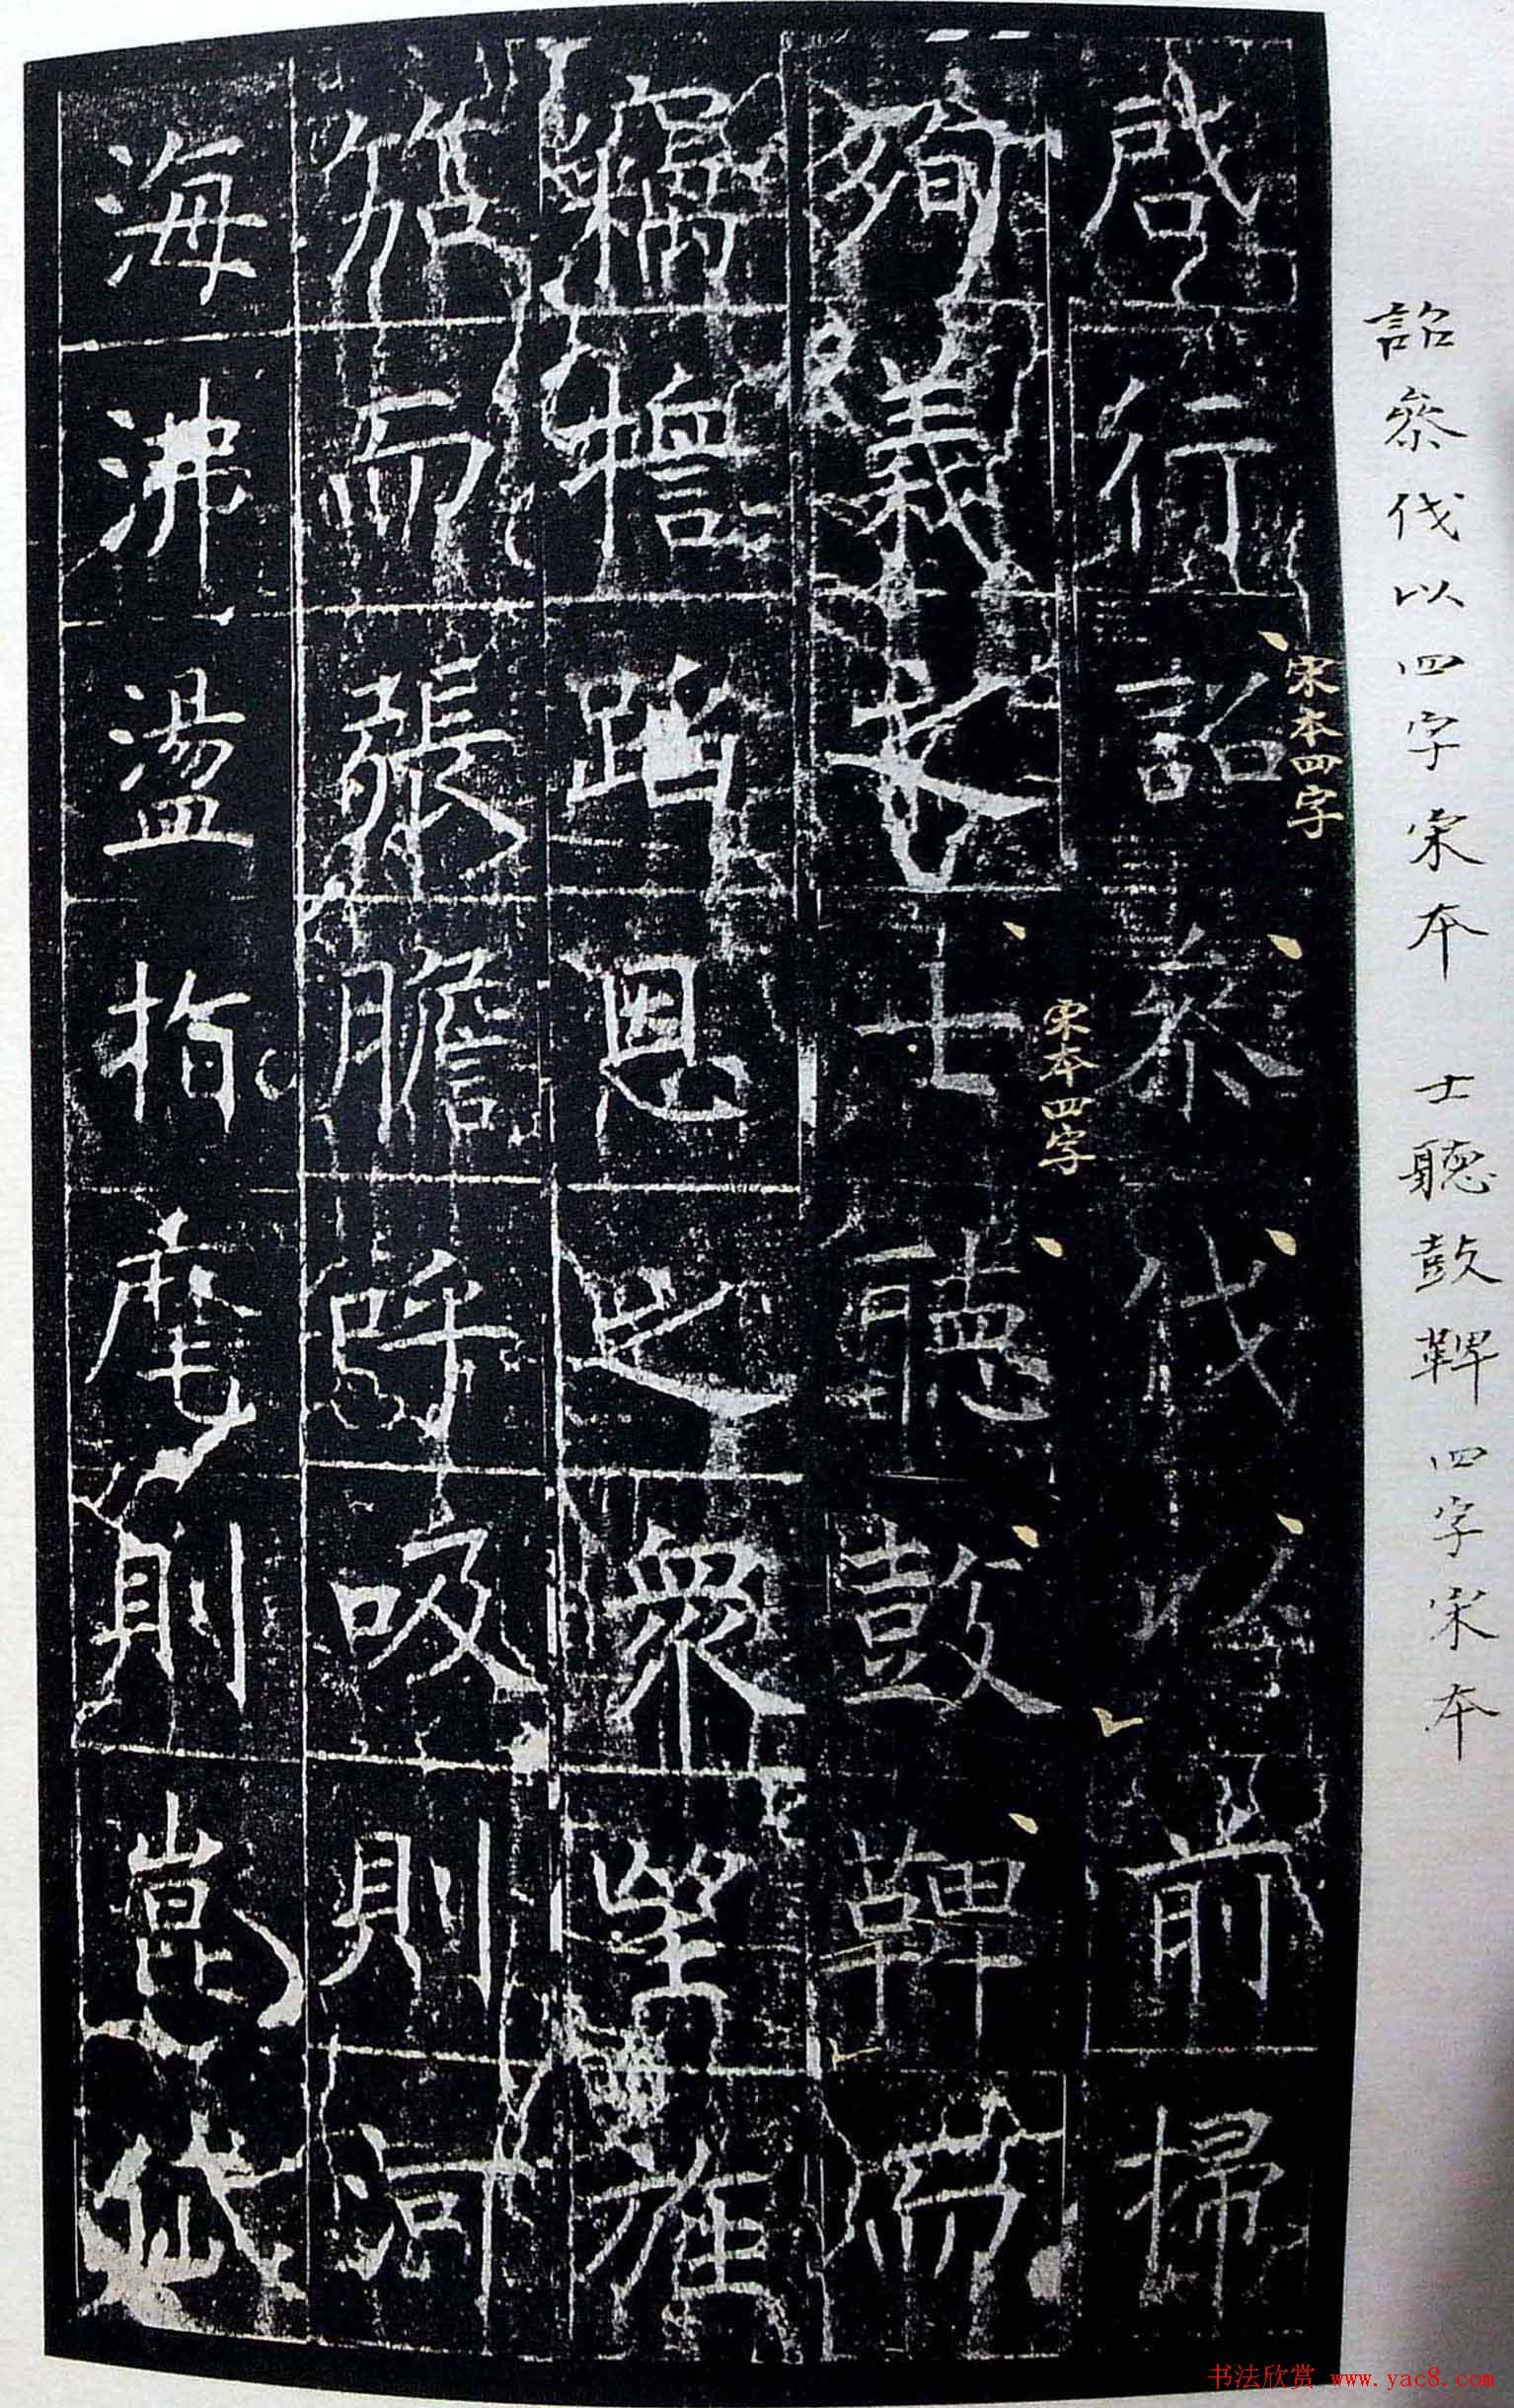 詔叅伐以四字宋本 士聽鼓鞞四字宋本
啓行詔叅伐以前掃
宋本四字
殉義之士聽鼓鞞而
宋本四字
竊檐蹈恩之衆望旌
而張膽呼吸則河
海沸盪指麾則崑岱
书法欣赏 www.yac8.com